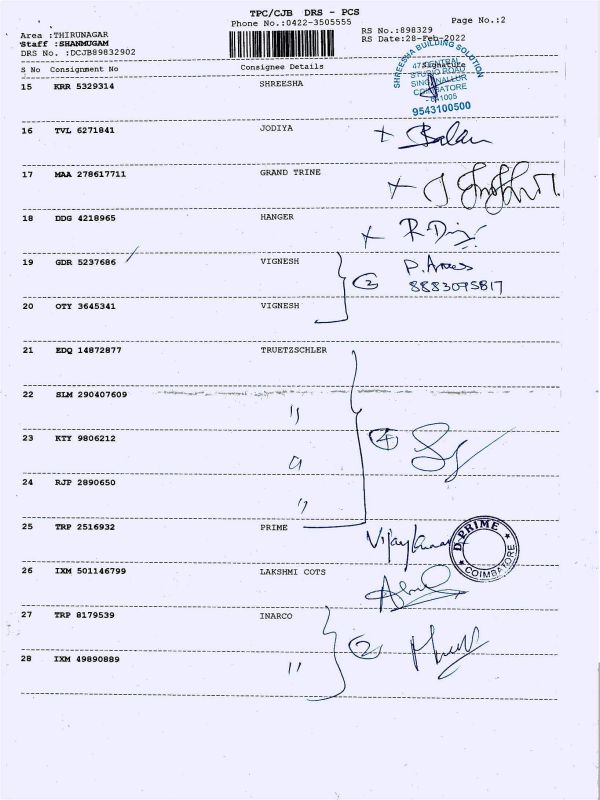 TPC/CJB DRS - PCS
Phone No.:0422-3505555
Page No.:2
Area :THIRUNAGAR
RS No.:898329
Staff :SHANMUGAM
RS Date:28-Feb-2022
DRS No. :DCJB89832902
S No Consignment No Consignee Details Signature
SHREESHA BUILDING SOLUTION
STUDIO ROAD
SINGANALLUR
COIMBATORE
- 641005
9543100500
15 KRR 5329314 SHREESHA
16 TVL 6271841 JODIYA
Balan
17 MAA 278617711 GRAND TRINE
18 DDG 4218965 HANGER
19 GDR 5237686 VIGNESH
2
8883095817
20 OTY 3645341 VIGNESH
21 EDQ 14872877 TRUETZSCHLER
22 SLM 290407609 "
23 KTY 9806212 "
4
24 RJP 2890650 "
25 TRP 2516932 PRIME
Vijaykumar
D-PRIME
COIMBATORE
26 IXM 501146799 LAKSHMI COTS
27 TRP 8179539 INARCO
2
28 IXM 49890889 "